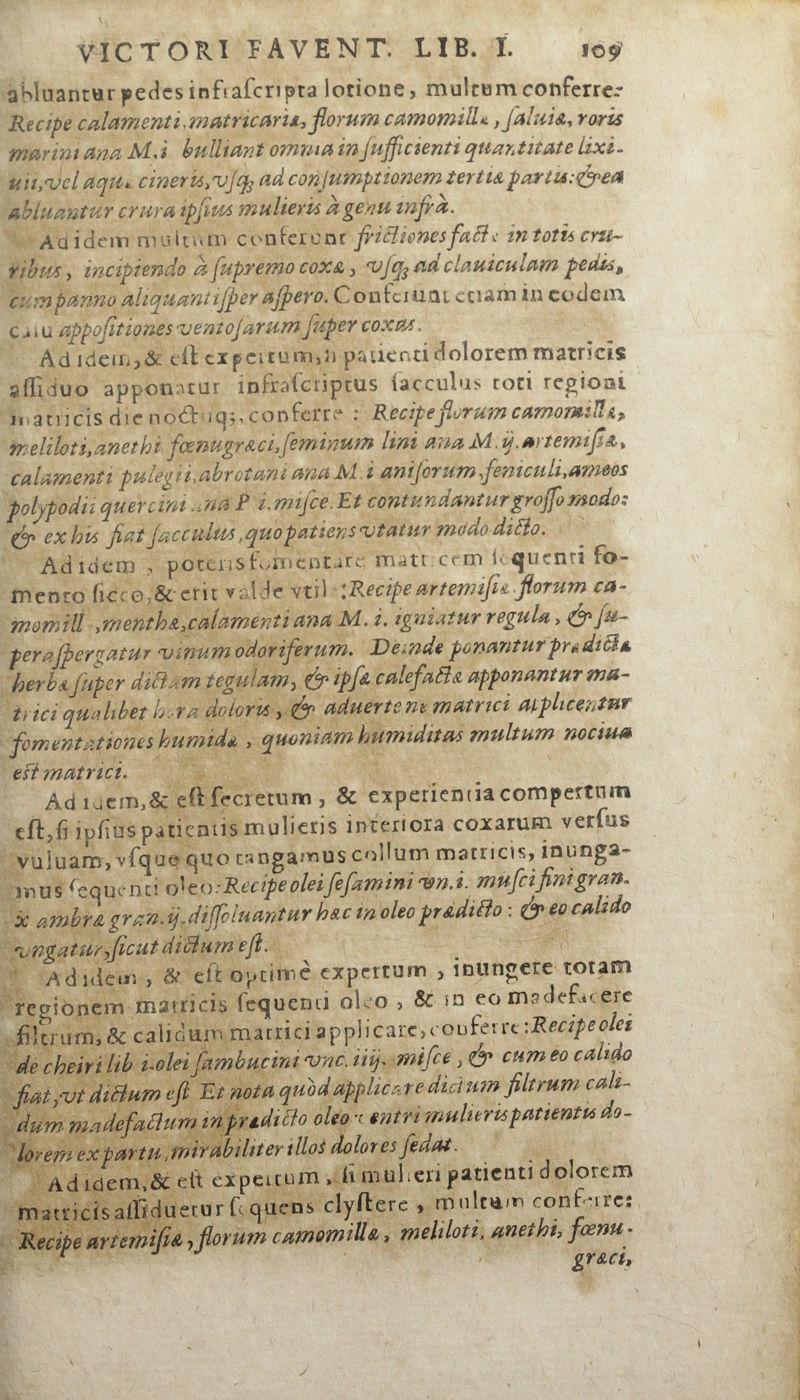 VICTORI FAVENT. LIB. I. 109
abluantur pedes infrascripta lotione, multum conferre:
Recipe calamenti, matricariæ, florum camomillæ, saluiæ, roris
marini ana M.i bulliant omnia in sufficienti quantitate lixi-
uii, vel aquæ cineris, vsq; ad consumptionem tertiæ partis: & ea
abluantur crura ipsius mulieris à genu infrà.
Ad idem multum conferunt frictiones factæ in totis cru-
ribus, incipiendo à supremo coxæ, vsq; ad clauiculam pedis,
cum panno aliquantisper aspero. Conferunt etiam in eodem
casu appositiones ventosarum super coxas.
Ad idem, & est expertum, si patienti dolorem matricis
assiduo apponatur infrascriptus sacculus toti regioni
matricis die noctuq;, conferre : Recipe florum camomillæ,
meliloti, anethi fœnugræci, seminum lini ana M.ij. artemisiæ,
calamenti pulegii, abrotani ana M.i anisorum, feniculi, ameos
polypodii quercini ana P i. misce. Et contundantur grosso modo:
& ex his fiat sacculus, quo patiens vtatur modo dicto.
Ad idem , poteris fomentare matricem sequenti fo-
mento sicco, & erit valde vtil : Recipe artemisiæ florum ca-
momill , menthæ, calamenti ana M. i. igniatur regula, & su-
peraspergatur vinum odoriferum. Deinde ponantur prædictæ
herbæ super dictam tegulam, & ipsæ calefactæ apponantur ma-
trici qualibet hora doloris, & aduertente matrici applicentur
fomentationes humidæ , quoniam humiditas multum nociua
est matrici.
Ad idem, & est secretum, & experientia compertum
est, si ipsius patientis mulieris interiora coxarum versus
vuluam, vsque quo tangamus collum matricis, inunga-
mus sequenti oleo: Recipe olei sesamini vn.i. musci fini gran.
x ambræ gran.ij. dissoluantur hæc in oleo prædicto : & eo calido
vngatur, sicut dictum est.
Ad idem , & est optimè expertum , inungere totam
regionem matricis sequenti oleo , & in eo madefacere
filtrum, & calidum matrici applicare, conferre : Recipe olei
de cheiri lib i. olei sambucini vnc. iiij. misce, & cum eo calido
fiat, vt dictum est Et nota quòd applicare dictum filtrum cali-
dum madefactum in prædicto oleo entri mulieris patientis do-
lorem ex partu, mirabiliter illos dolores sedat.
Ad idem, & est expertum , si mulieri patienti dolorem
matricis assiduetur sequens clystere , multum conferre:
Recipe artemisiæ, florum camomillæ, meliloti, anethi, fœnu-
græci,